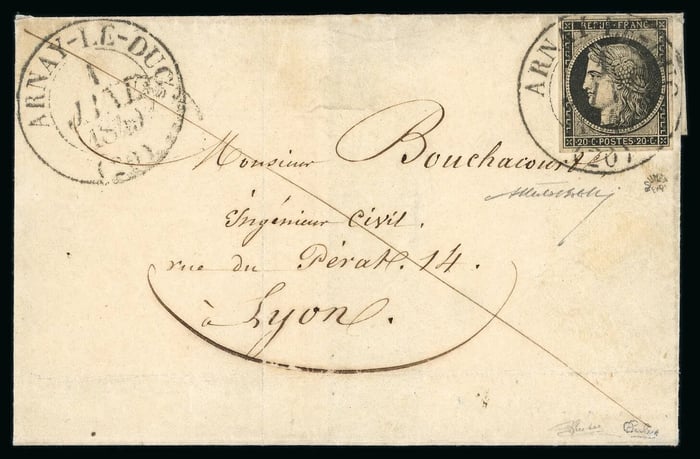 ARNAY-LE-DUC
1
JANV.
1849
(20)
REPUB. FRANC.
20 C. POSTES 20 C.
ARNAY-LE-DUC
(20)
Monsieur Bouchacourt,
Ingénieur Civil.
rue du Pérat. 14.
à Lyon.